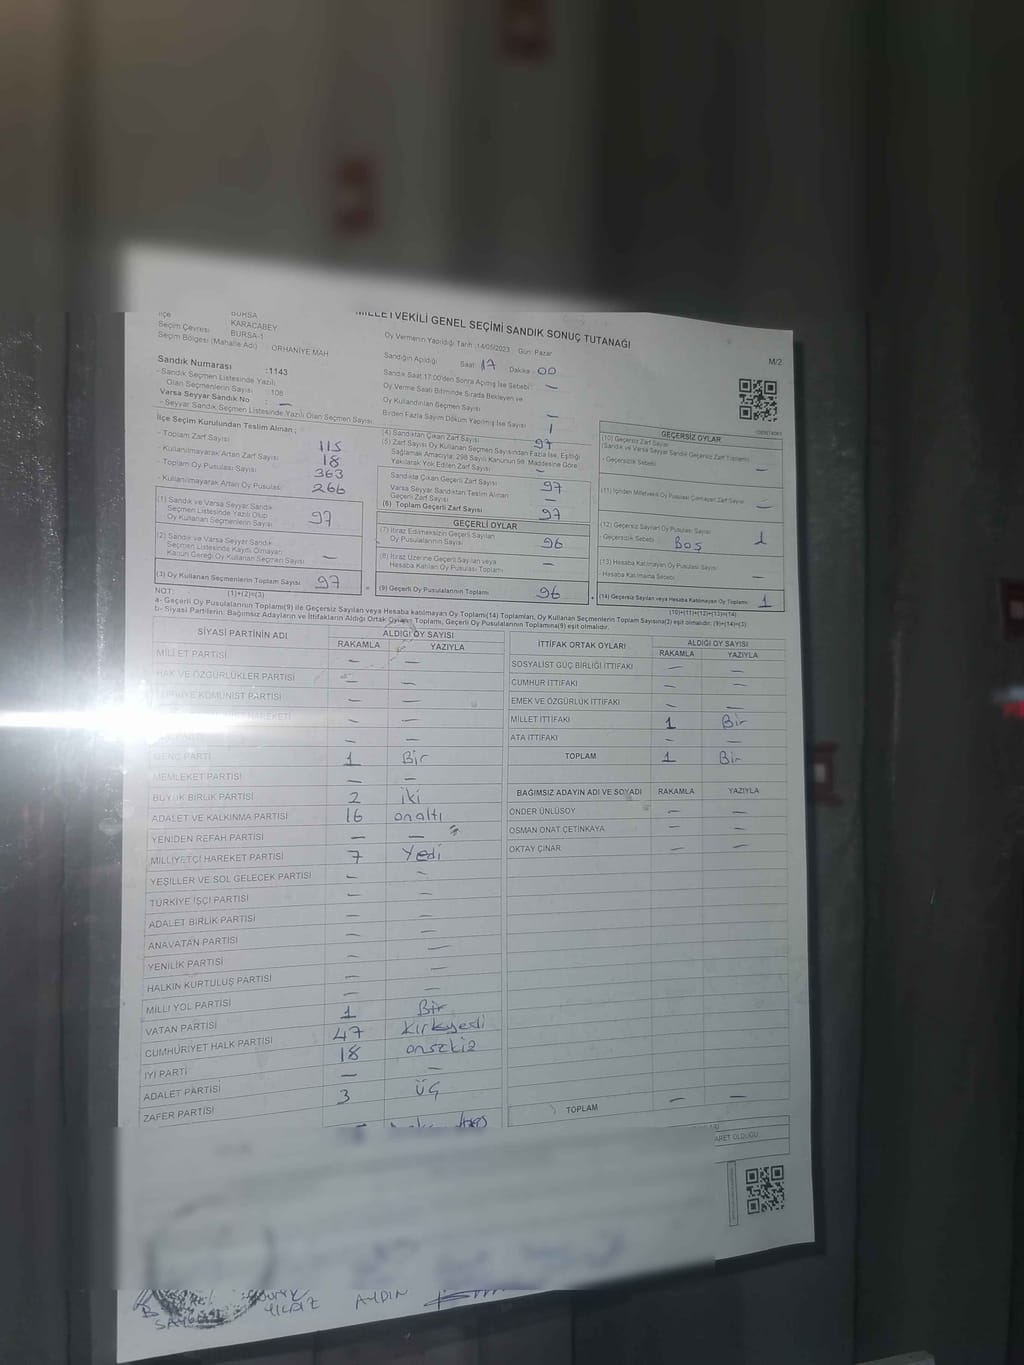 MİLLETVEKİLİ GENEL SEÇİMİ SANDIK SONUÇ TUTANAĞI
İlçe BURSA
KARACABEY
Seçim Çevresi BURSA-1
Seçim Bölgesi (Mahalle Adı) : ORHANİYE MAH
Oy Vermenin Yapıldığı Tarih :14/05/2023 Gün: Pazar
M/2
Sandık Numarası :1143
Sandığın Açıldığı Saat: 17 Dakika: 00
- Sandık Seçmen Listesinde Yazılı
Olan Seçmenlerin Sayısı : 108
Varsa Seyyar Sandık No : —
- Seyyar Sandık Seçmen Listesinde Yazılı Olan Seçmen Sayısı:
Sandık Saat 17:00'den Sonra Açılmış İse Sebebi: —
Oy Verme Saati Bitiminde Sırada Bekleyen ve
Oy Kullandırılan Seçmen Sayısı —
Birden Fazla Sayım Döküm Yapılmış İse Sayısı 1
İlçe Seçim Kurulundan Teslim Alınan ;
- Toplam Zarf Sayısı 115
- Kullanılmayarak Artan Zarf Sayısı 18
- Toplam Oy Pusulası Sayısı 363
- Kullanılmayarak Artan Oy Pusulası 266
(1) Sandık ve Varsa Seyyar Sandık
Seçmen Listesinde Yazılı Olup
Oy Kullanan Seçmenlerin Sayısı 97
(2) Sandık ve Varsa Seyyar Sandık
Seçmen Listesinde Kaydı Olmayan
Kanun Gereği Oy Kullanan Seçmen Sayısı —
(3) Oy Kullanan Seçmenlerin Toplam Sayısı 97
(1)+(2)=(3)
(4) Sandıktan Çıkan Zarf Sayısı 97
(5) Zarf Sayısı Oy Kullanan Seçmen Sayısından Fazla İse, Eşitliği
Sağlamak Amacıyla; 298 Sayılı Kanunun 98. Maddesine Göre
Yakılarak Yok Edilen Zarf Sayısı —
Sandıkta Çıkan Geçerli Zarf Sayısı 97
Varsa Seyyar Sandıktan Teslim Alınan
Geçerli Zarf Sayısı —
(6) Toplam Geçerli Zarf Sayısı 97
GEÇERLİ OYLAR
(7) İtiraz Edilmeksizin Geçerli Sayılan
Oy Pusulalarının Sayısı 96
(8) İtiraz Üzerine Geçerli Sayılan veya
Hesaba Katılan Oy Pusulası Toplamı —
(9) Geçerli Oy Pusulalarının Toplamı 96
GEÇERSİZ OYLAR
(10) Geçersiz Zarf Sayısı
(Sandık ve Varsa Seyyar Sandık Geçersiz Zarf Toplamı)
- Geçersizlik Sebebi —
(11) İçinden Milletvekili Oy Pusulası Çıkmayan Zarf Sayısı —
(12) Geçersiz Sayılan Oy Pusulası Sayısı 1
- Geçersizlik Sebebi Boş
(13) Hesaba Katılmayan Oy Pusulası Sayısı
- Hesaba Katılmama Sebebi —
(14) Geçersiz Sayılan veya Hesaba Katılmayan Oy Toplamı 1
(10)+(11)+(12)+(13)=(14)
NOT:
a- Geçerli Oy Pusulalarının Toplamı(9) ile Geçersiz Sayılan veya Hesaba katılmayan Oy Toplamı(14) Toplamları, Oy Kullanan Seçmenlerin Toplam Sayısına(3) eşit olmalıdır. (9)+(14)=(3)
b- Siyasi Partilerin, Bağımsız Adayların ve İttifakların Aldığı Ortak Oyların Toplamı, Geçerli Oy Pusulalarının Toplamına(9) eşit olmalıdır.
SİYASİ PARTİNİN ADI ALDIĞI OY SAYISI
RAKAMLA YAZIYLA
MİLLET PARTİSİ — —
HAK VE ÖZGÜRLÜKLER PARTİSİ — —
TÜRKİYE KOMÜNİST PARTİSİ — —
HAREKETİ — —
— —
GENÇ PARTİ 1 Bir
MEMLEKET PARTİSİ — —
BÜYÜK BİRLİK PARTİSİ 2 iki
ADALET VE KALKINMA PARTİSİ 16 onaltı
YENİDEN REFAH PARTİSİ — —
MİLLİYETÇİ HAREKET PARTİSİ 7 Yedi
YEŞİLLER VE SOL GELECEK PARTİSİ — —
TÜRKİYE İŞÇİ PARTİSİ — —
ADALET BİRLİK PARTİSİ — —
ANAVATAN PARTİSİ — —
YENİLİK PARTİSİ — —
HALKIN KURTULUŞ PARTİSİ — —
MİLLİ YOL PARTİSİ
VATAN PARTİSİ 1 Bir
CUMHURİYET HALK PARTİSİ 47 Kırkyedi
İYİ PARTİ 18 onsekiz
ADALET PARTİSİ — —
ZAFER PARTİSİ 3 ÜÇ
İTTİFAK ORTAK OYLARI ALDIĞI OY SAYISI
RAKAMLA YAZIYLA
SOSYALİST GÜÇ BİRLİĞİ İTTİFAKI — —
CUMHUR İTTİFAKI — —
EMEK VE ÖZGÜRLÜK İTTİFAKI — —
MİLLET İTTİFAKI 1 Bir
ATA İTTİFAKI — —
TOPLAM 1 Bir
BAĞIMSIZ ADAYIN ADI VE SOYADI RAKAMLA YAZIYLA
ÖNDER ÜNLÜSOY — —
OSMAN ONAT ÇETİNKAYA — —
OKTAY ÇINAR — —
TOPLAM — —
YILDIZ
AYDIN